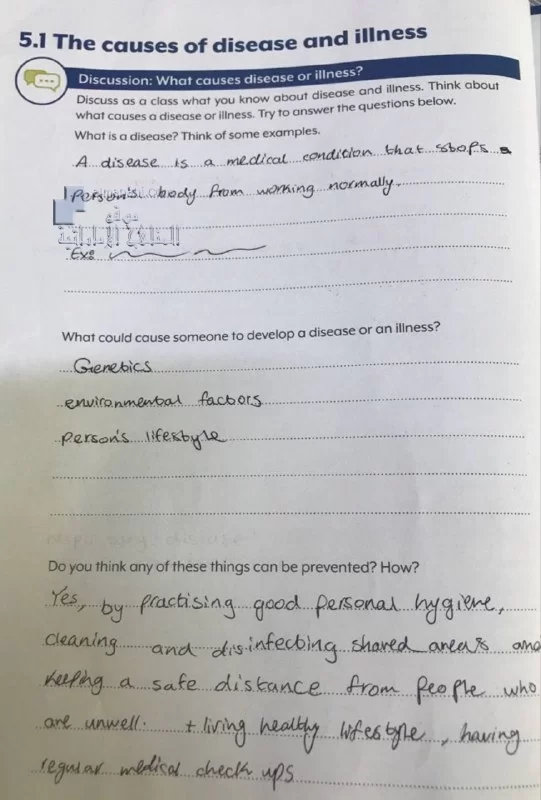 5.1 The causes of disease and illness
Discussion: What causes disease or illness?
Discuss as a class what you know about disease and illness. Think about
what causes a disease or illness. Try to answer the questions below.
What is a disease? Think of some examples.
A disease is a medical condition that stops a
Person's body from working normally.
موقع
المناهج الإماراتية
Ex:
What could cause someone to develop a disease or an illness?
Genetics
environmental factors
person's lifestyle
Do you think any of these things can be prevented? How?
Yes, by practising good personal hygiene,
cleaning and disinfecting shared areas and
keeping a safe distance from people who
are unwell. + living healthy lifestyle, having
regular medical check ups